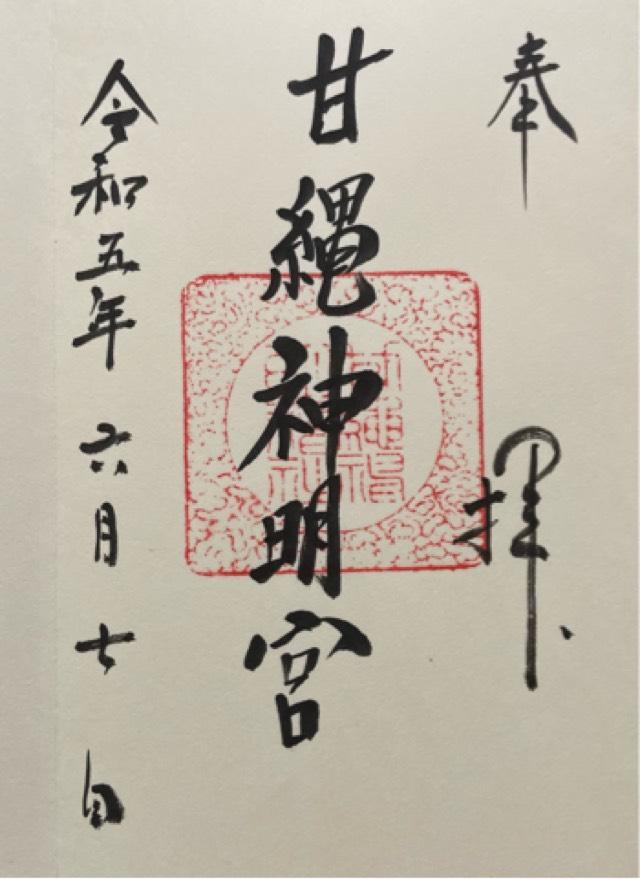 奉拝
甘縄神明宮
令和五年六月七日